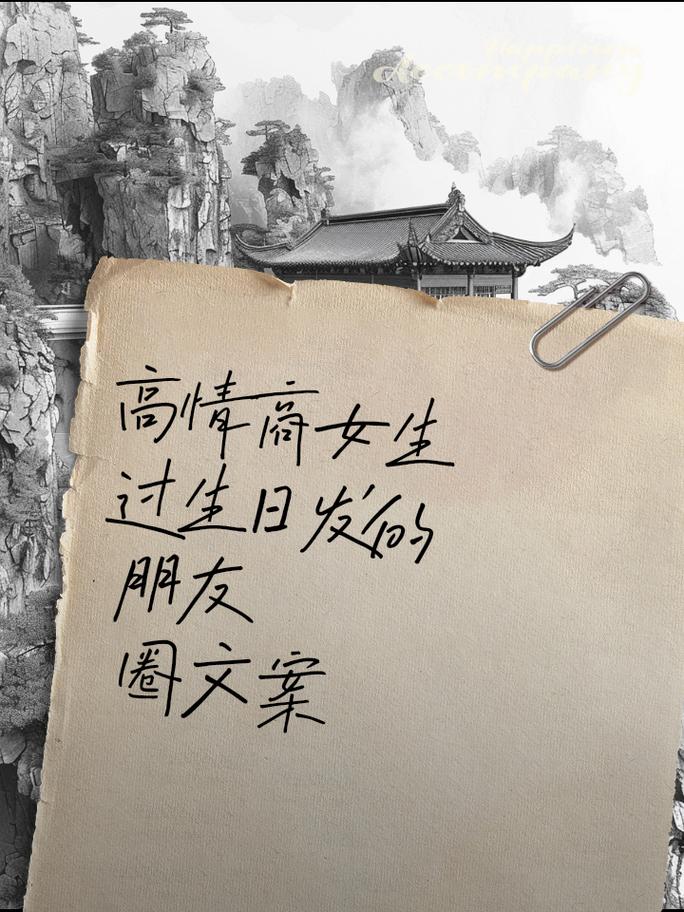 Happiness
accompany
高情商女生
过生日发的
朋友
圈文案